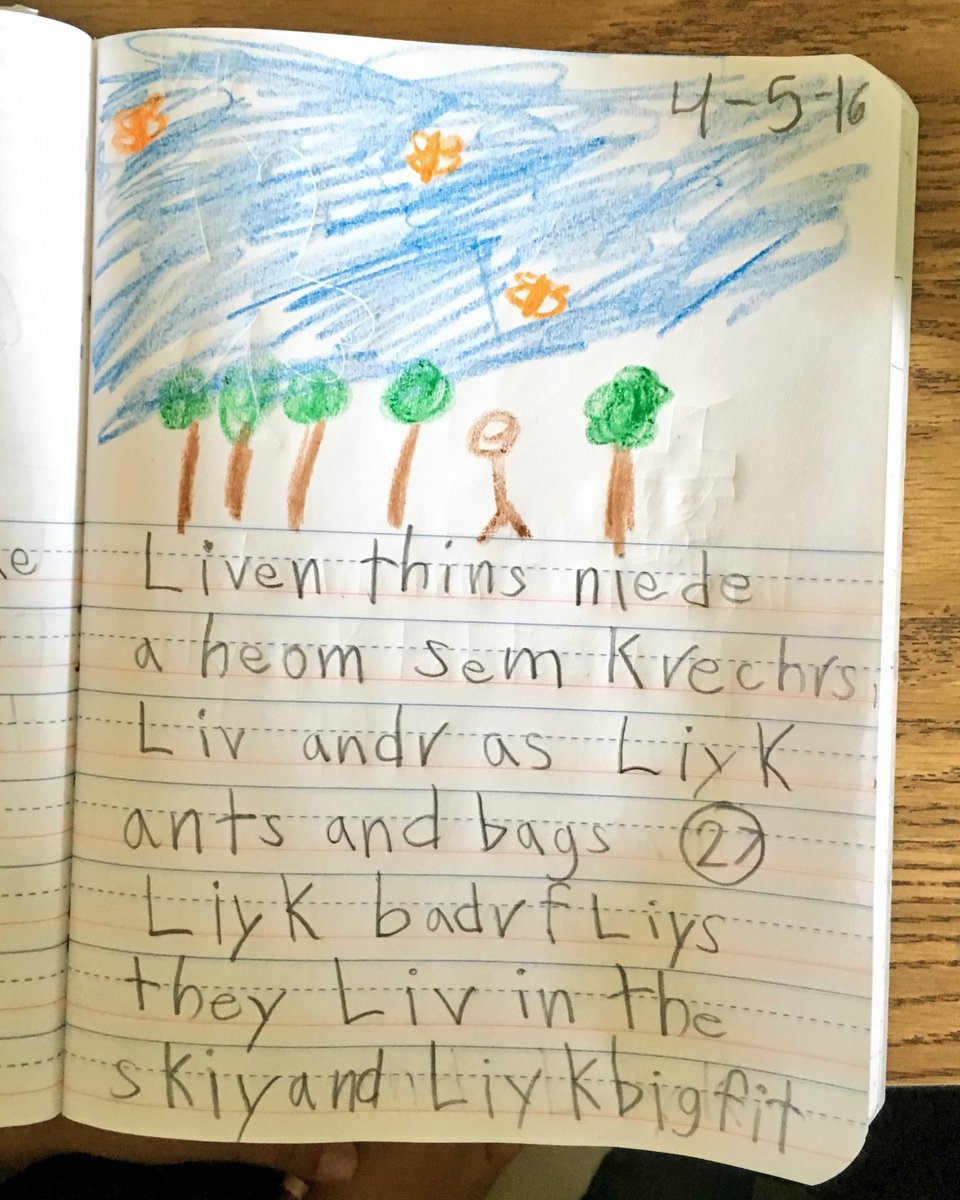 4-5-16
Liven thins niede
a heom sem Krechrs
Liv andr as LiyK
ants and bags 27
LiyK badrfLiys
they Liv in the
skiy and LiyK bigfit